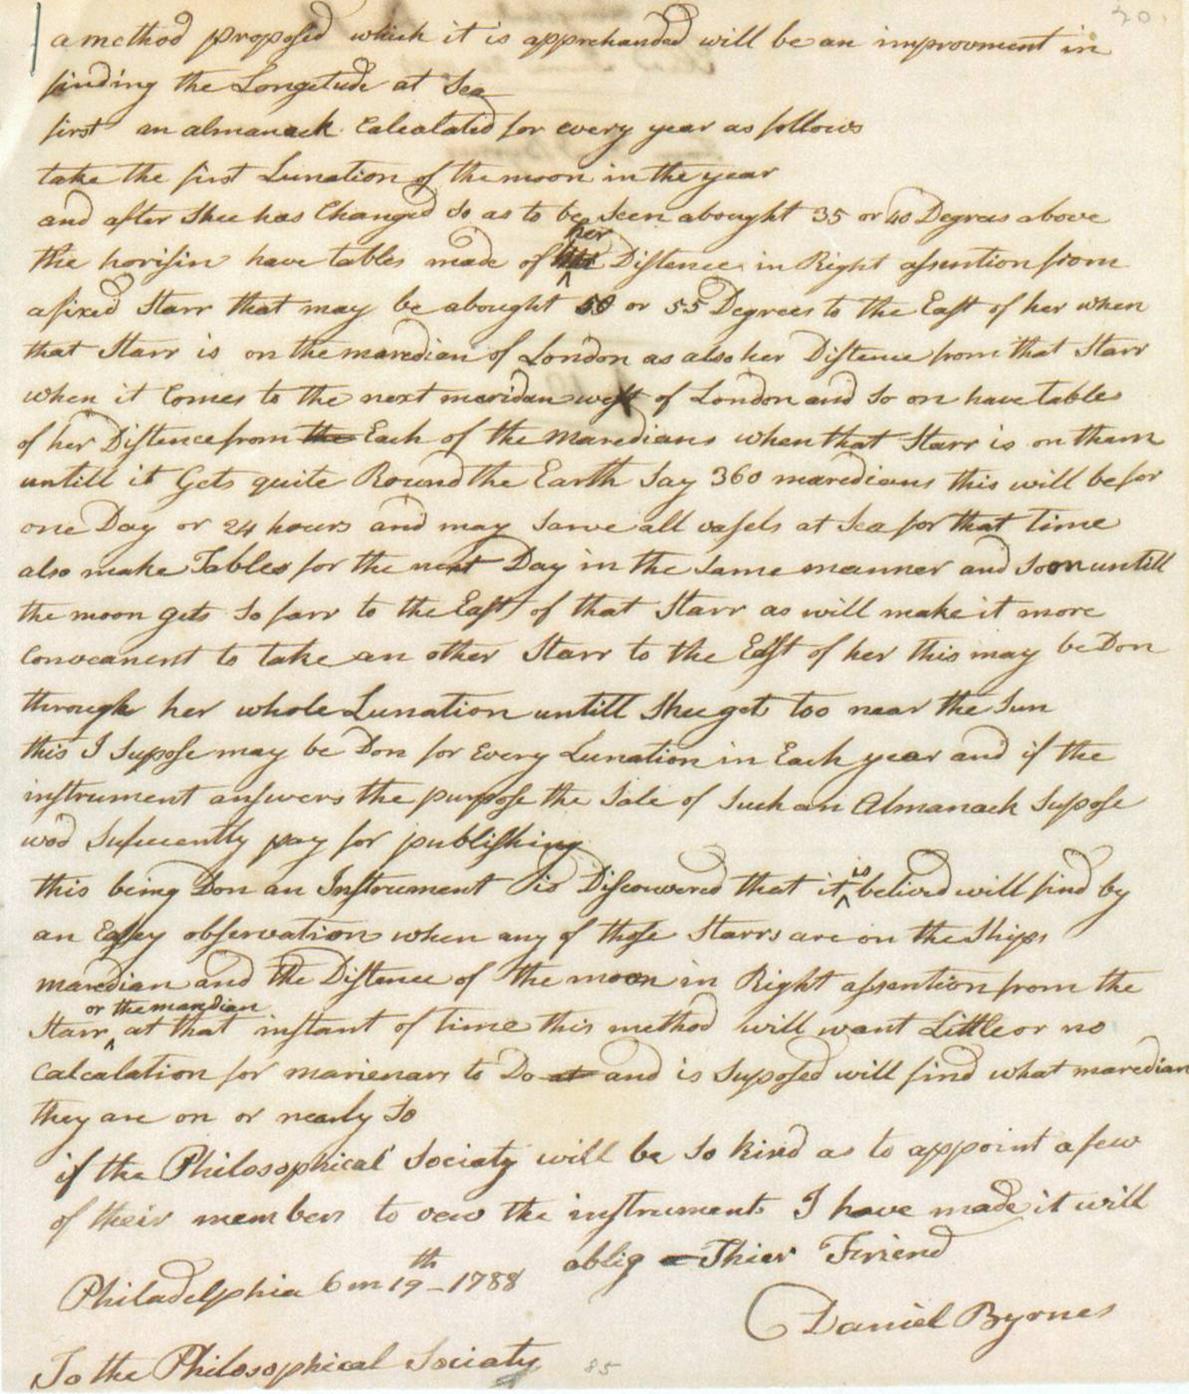 20
a method proposed which it is apprehanded will be an improvment in
finding the Longetude at Sea
first an almanack Calcalated for every year as follows
take the first Lunation of the moon in the year
and after Shee has Changed So as to be Seen abought 35 or 40 Degrees above
the horisin have tables made of her Distence in Right assention from
a fixed Starr that may be abought 50 or 55 Degrees to the East of her when
that Starr is on the maredian of London as also her Distence from that Starr
when it Comes to the next maridan west of London and So on have tables
of her Distence from the Each of the maredians when that Starr is on them
untill it Gets quite Round the Earth Say 360 maredians this will be for
one Day or 24 hours and may Sarve all vasels at Sea for that time
also make Tables for the next Day in the Same manner and So on untill
the moon gets So farr to the East of that Starr as will make it more
Conveanent to take an other Starr to the East of her this may be Don
through her whole Lunation untill Shee get too near the Sun
this I Supose may be Don for Every Lunation in Each year and if the
instrument answers the purpose the Sale of Such an Almanack Supose
wod Sufucently pay for publishing
this being Don an Instrument is Discouvered that it is belived will find by
an Easey observation when any of those Starrs are on the Ships
maredian and the Distence of the moon in Right assention from the
or the maredian
Starr at that instant of time this method will want Little or no
Calcalation for marienars to Do at and is Suposed will find what maredian
they are on or nearly So
if the Philosophical Sociaty will be So kind as to appoint a few
of their members to vew the instruments I have made it will
oblig Thier Friend
Philadelphia 6 m 19th - 1788
Daniel Byrnes
To the Philosophical Sociaty
85